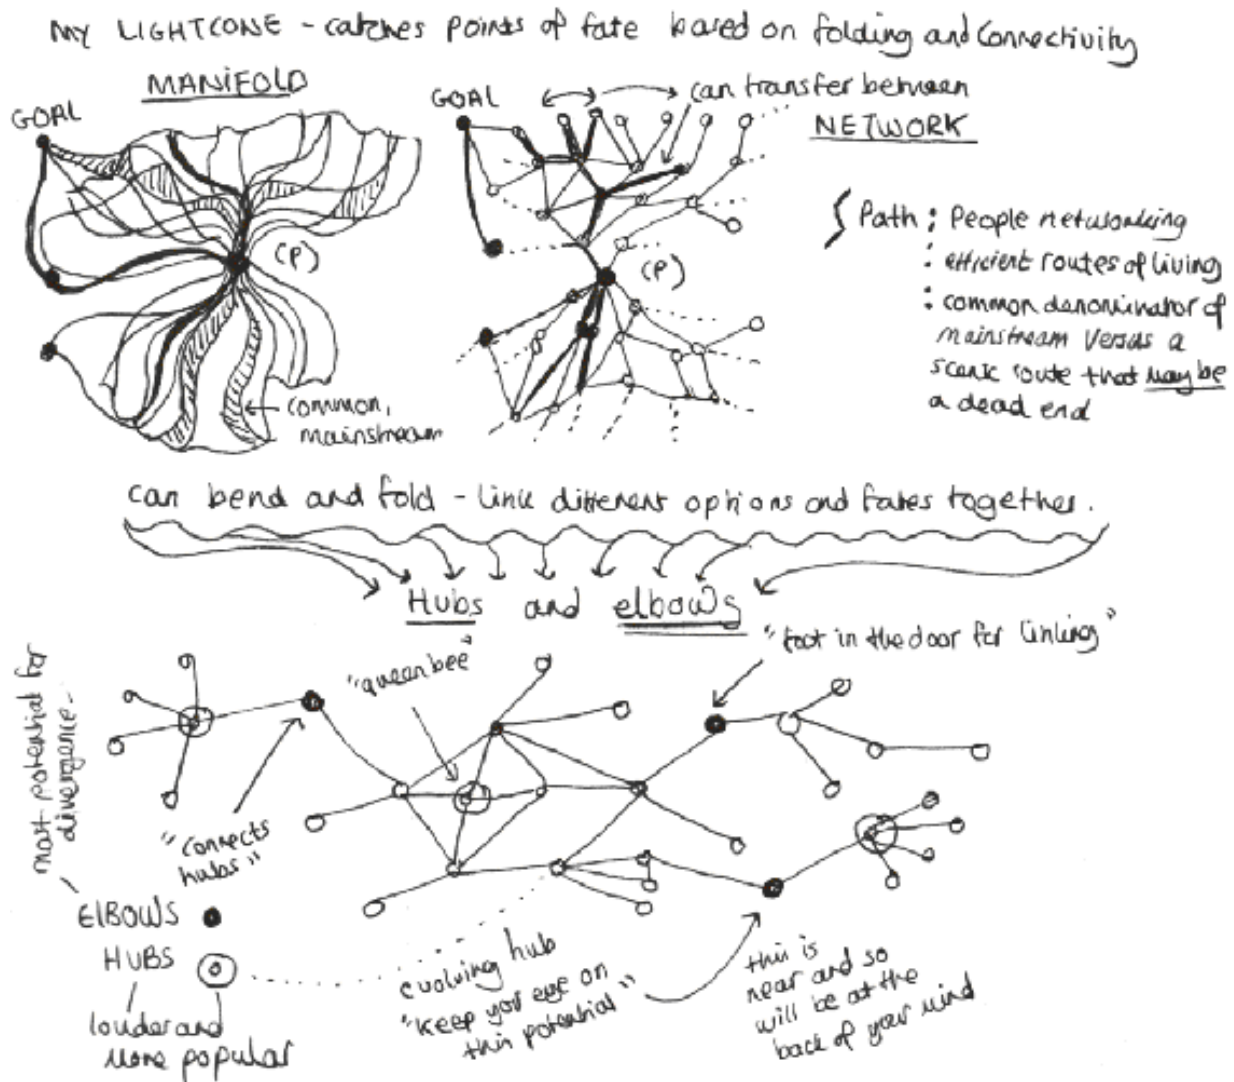 MY LIGHTCONE - catches points of fate based on folding and connectivity
MANIFOLD
GOAL
(P)
common,
mainstream
GOAL
can transfer between
NETWORK
(P)
Path : People networking
: efficient routes of living
: common denominator of
mainstream versus a
scenic route that may be
a dead end
can bend and fold - link different options and fates together.
Hubs and elbows
"queen bee"
"foot in the door for linking"
most potential for
divergence.
"connects
hubs"
ElBOWS
HUBS
louder and
more popular
evolving hub
"keep your eye on
this potential"
this is
near and so
will be at the
back of your mind